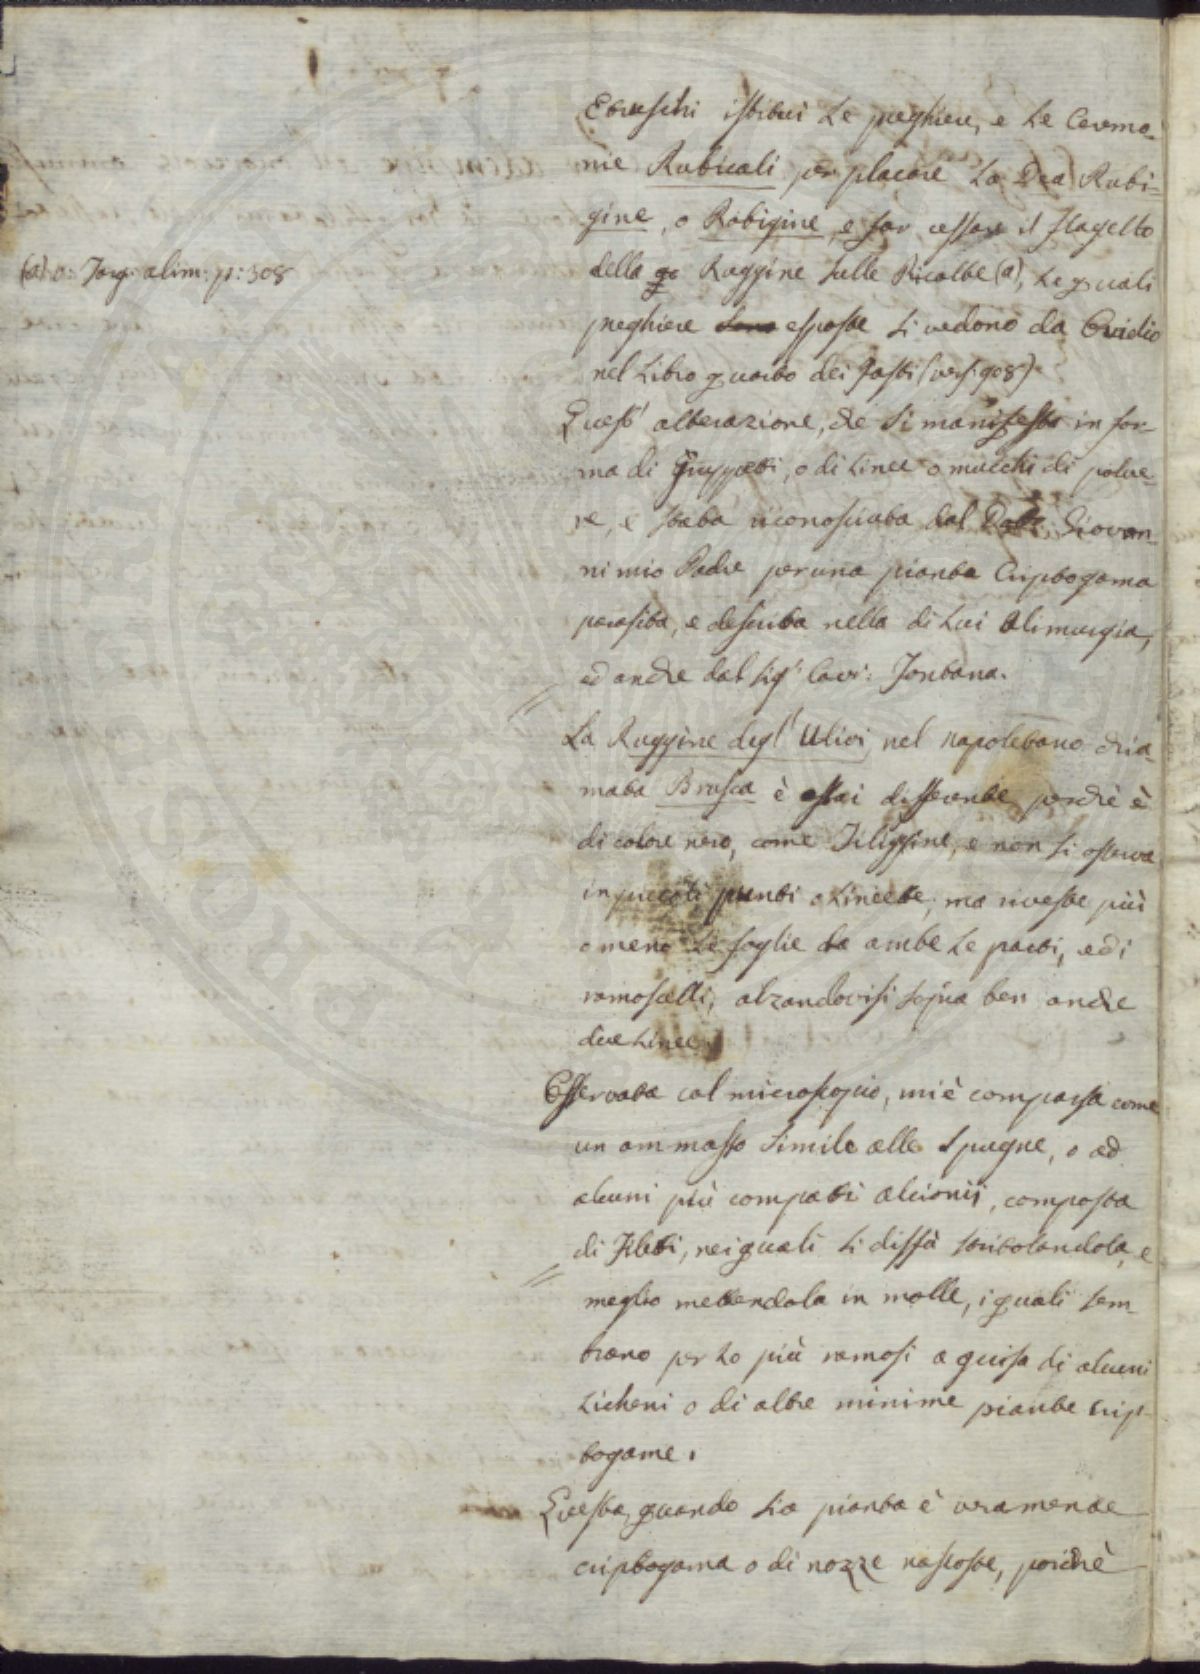 Etruschi istituì le preghiere, e le Ceremo-
nie Rubicali per placare la Dea Rubi-
gine, o Robigine, e far cessare il flagello
della Ruggine sulle Ricolte (a), le quali
(a) v: Targ: alim: p: 308
preghiere sono esposte si vedono da Ovidio
nel Libro quarto dei Fasti (vers. 908).
Quest' alterazione, che si manifesta in for-
ma di gruppetti, o di linee o mucchi di polve-
re, è stata riconosciuta dal Dott: Giovan-
ni mio Padre per una pianta Criptogama
parasita, e descritta nella di Lui Alimurgia,
ed anche dal Sigr: Cavr: Fontana.
La Ruggine degl' Ulivi, nel napoletano chia-
mata Brusca è assai differente, perchè è
di colore nero, come Filiggine, e non si osserva
in piccoli punti o lineette, ma riveste più
o meno le foglie da ambe le parti, ed i
ramoscelli, alzandovisi sopra ben anche
due linee.
Osservata col microscopio, mi è comparsa come
un ammasso simile alle Spugne, o ad
alcuni più compatti alcionii, composta
di Filetti, nei quali si disfà stritolandola, e
meglio mettendola in molle, i quali sem-
brano per lo più ramosi a guisa di alcuni
Licheni o di altre minime piante crip-
togame.
Questa, quando sia pianta è veramente
criptogama o di nozze nascoste, poichè